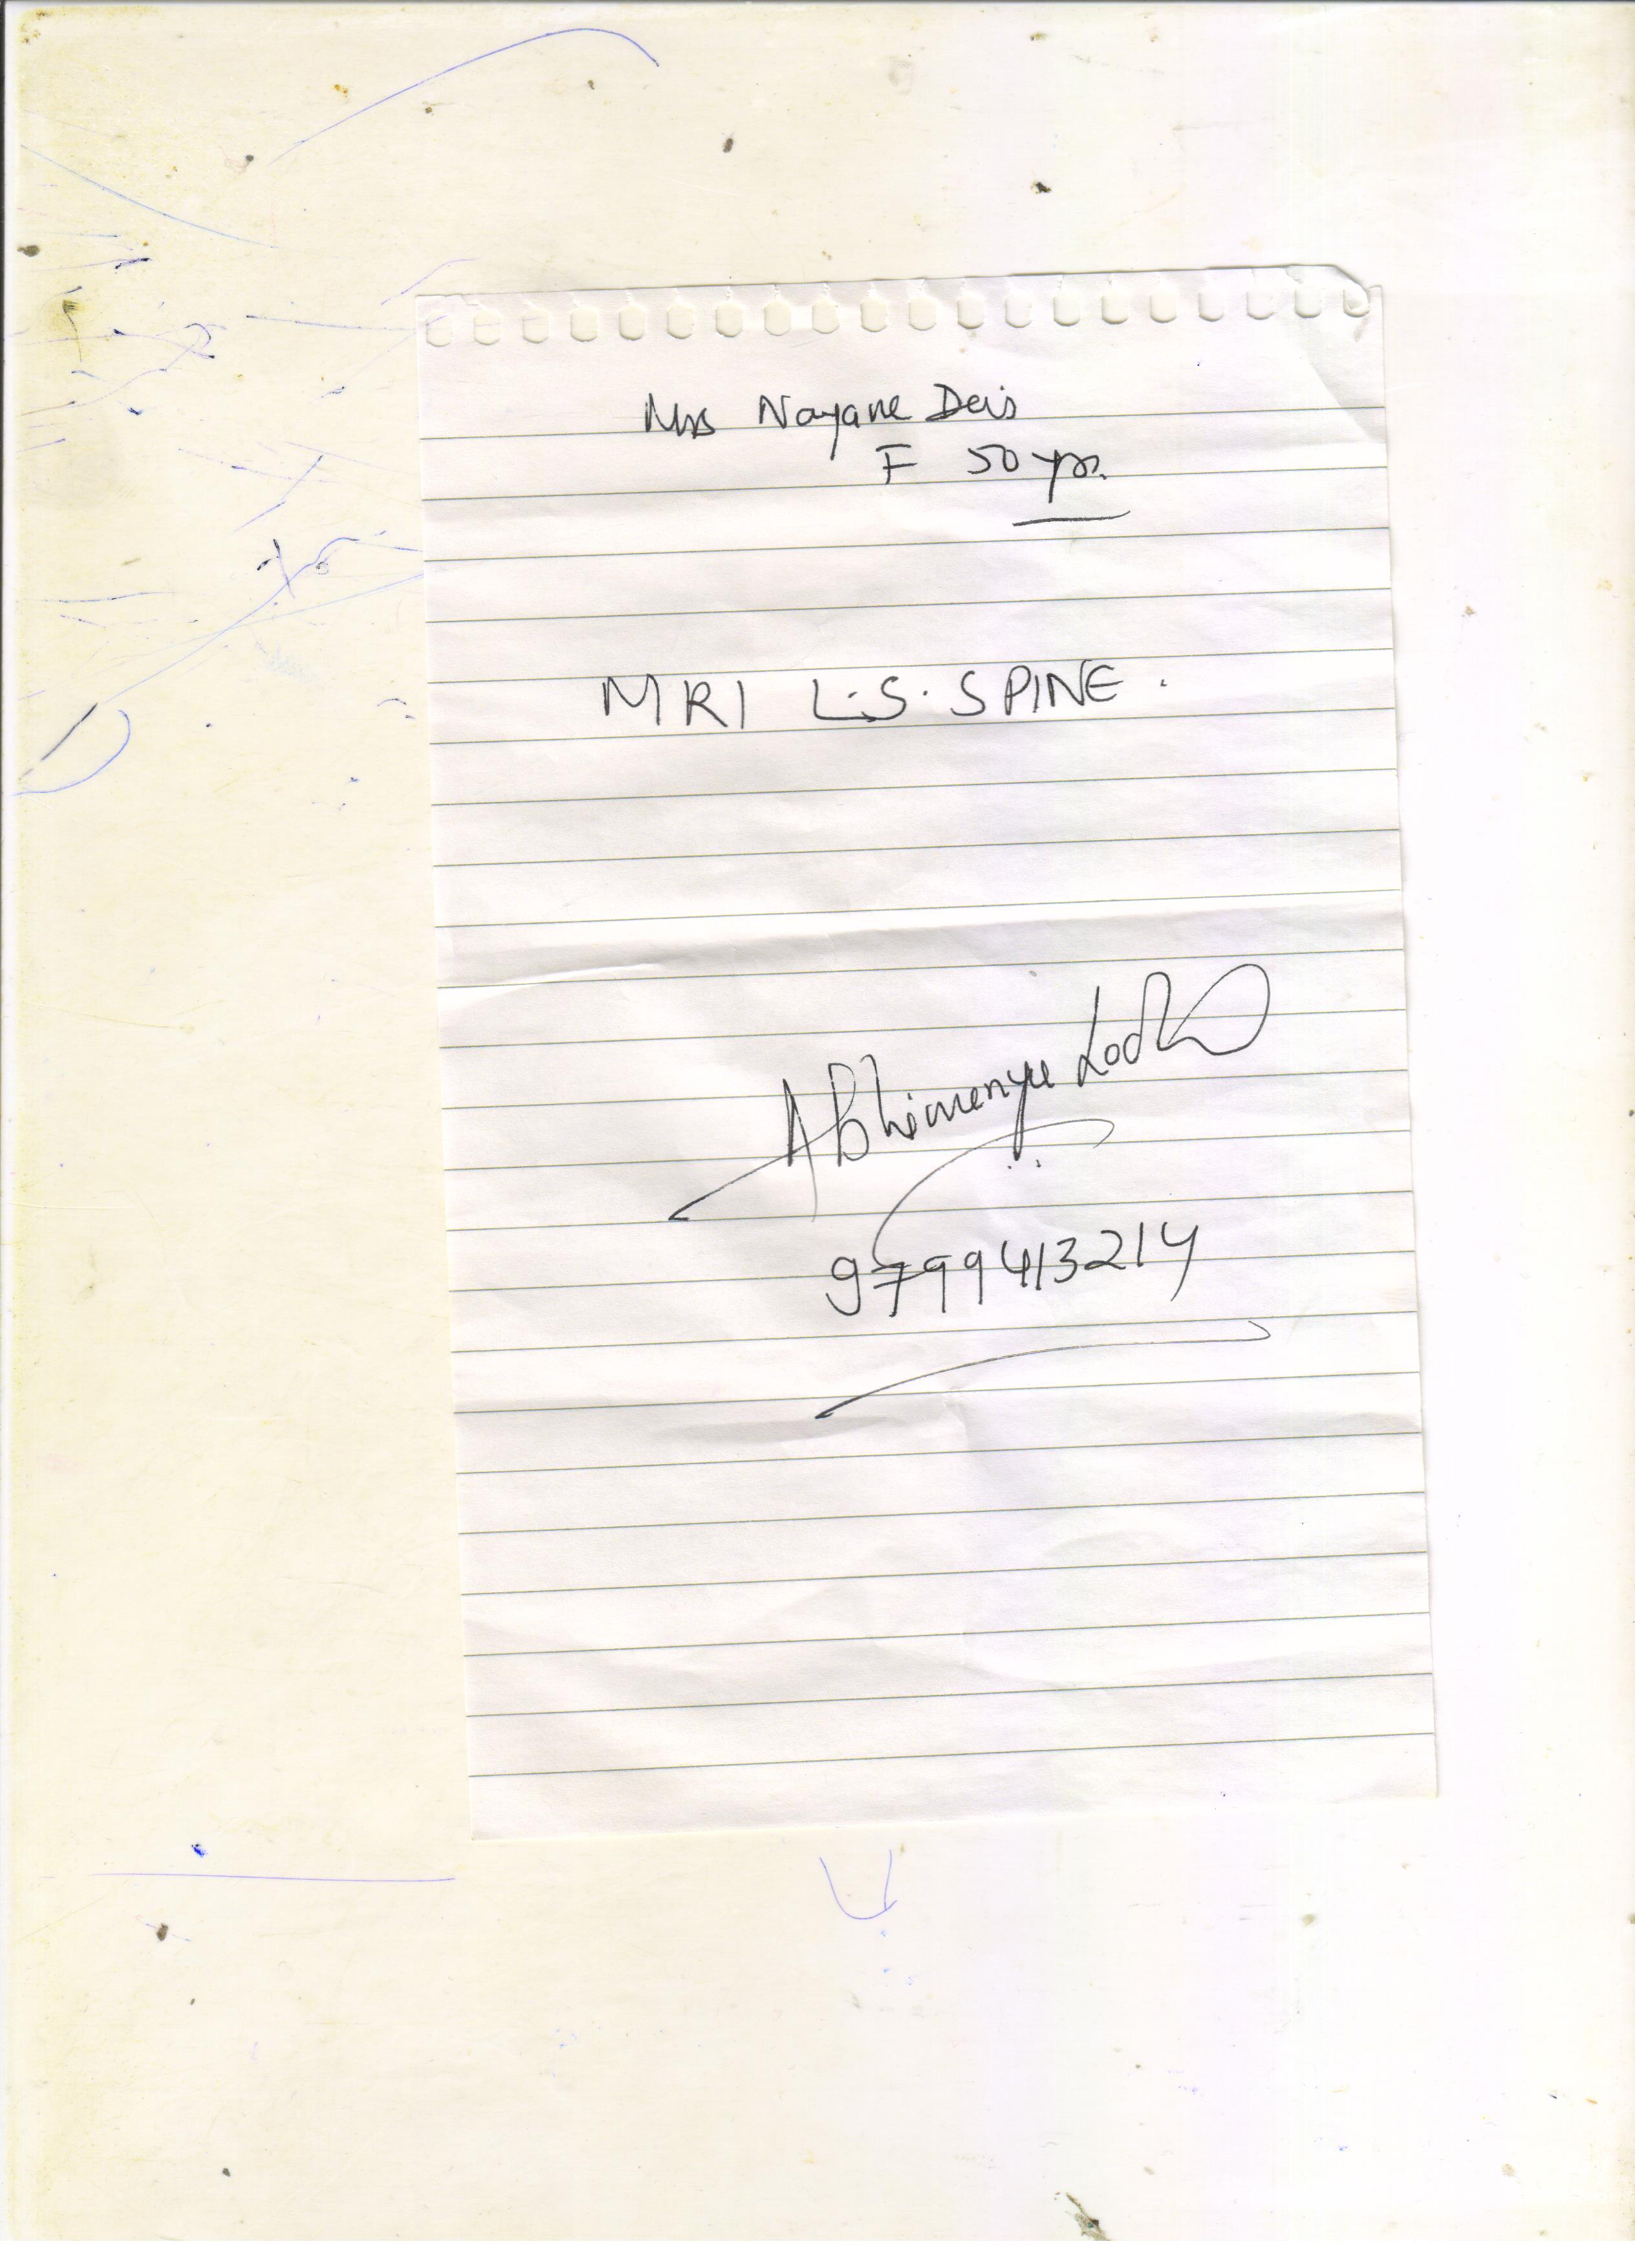 Mrs Nayane Devi
F 50 yrs.
MRI L.S. SPINE.
Abhimenyu Lodha
9799413214